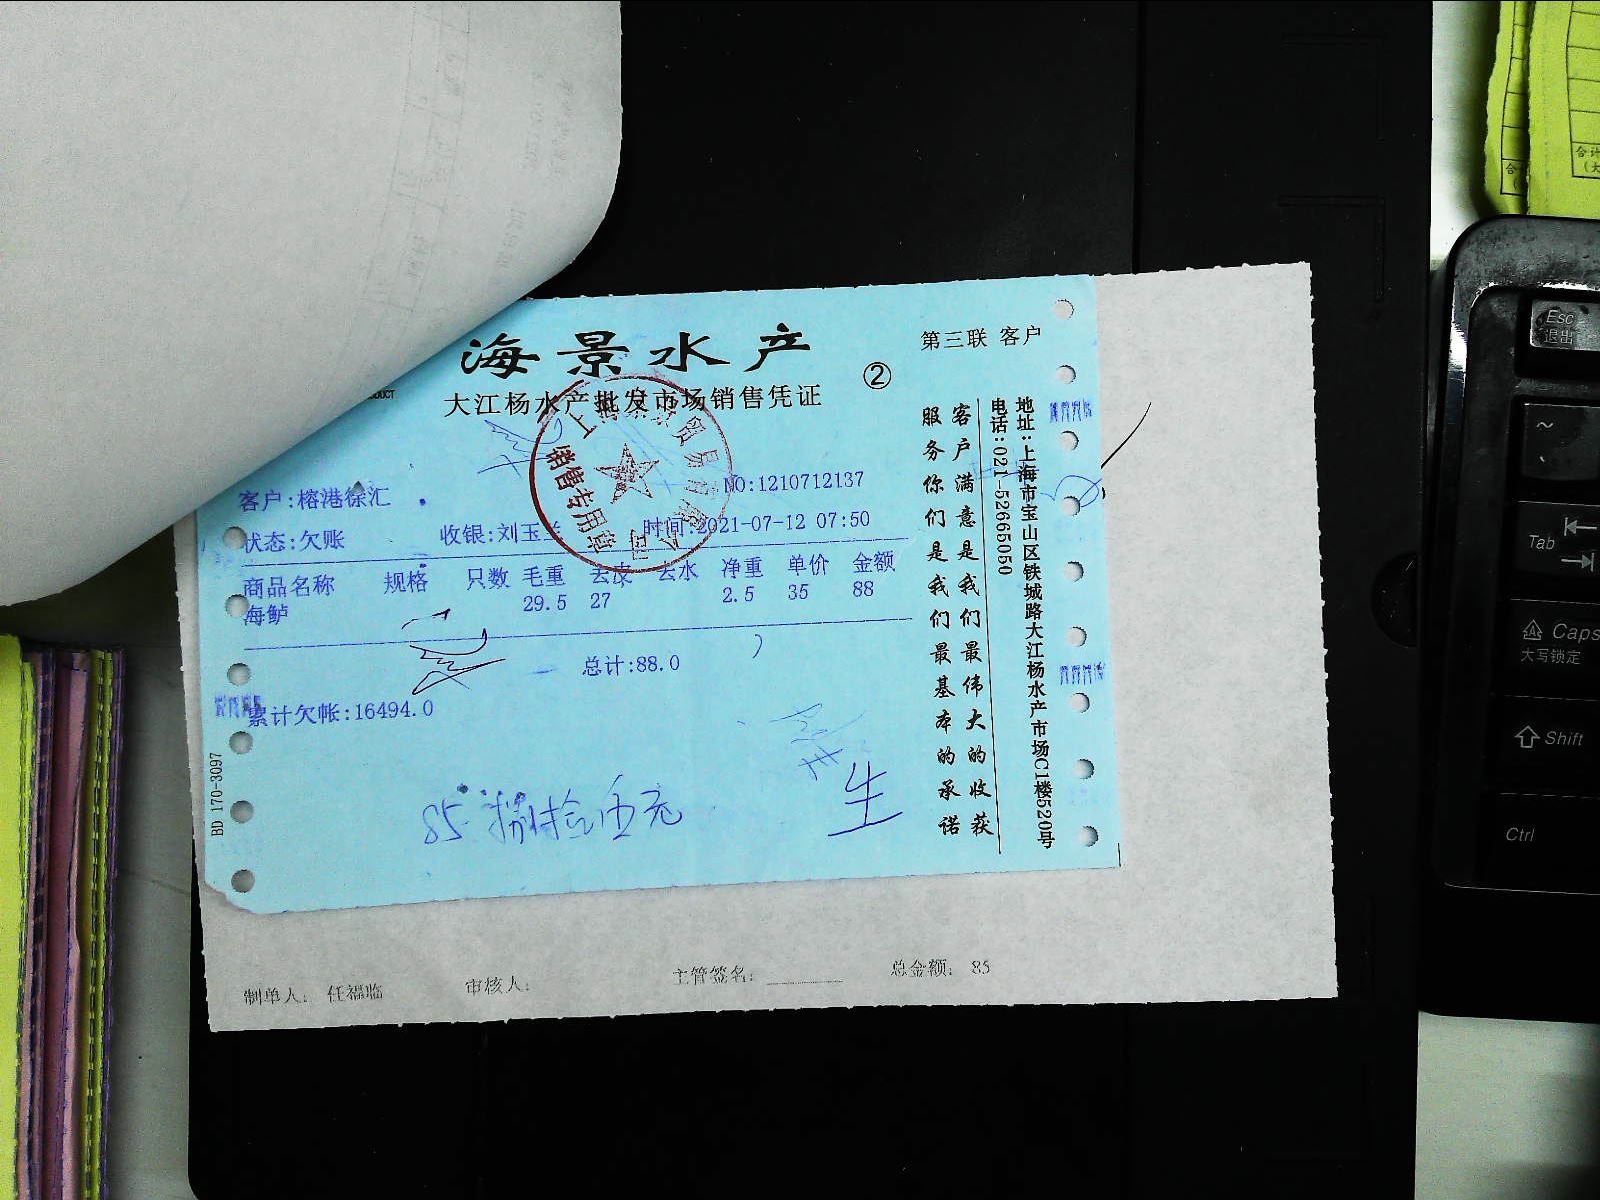 海景水产
第三联 客户
②
大江杨水产批发市场销售凭证
客户:榕港徐汇
NO:1210712137
状态:欠账 收银:刘玉兰 时间:2021-07-12 07:50
商品名称 规格 只数 毛重 去皮 去水 净重 单价 金额
海鲈 29.5 27 2.5 35 88
总计:88.0
累计欠帐:16494.0
85
生
销售专用章
客户满意是我们最伟大的收获
服务你们是我们最基本的承诺
地址:上海市宝山区铁城路大江杨水产市场C1楼520号
电话:021-52665050
BD 170-3097
制单人: 任福临 审核人: 主管签名: 总金额: 85
Esc
退出
~
Tab
Caps
大写锁定
Shift
Ctrl
合计